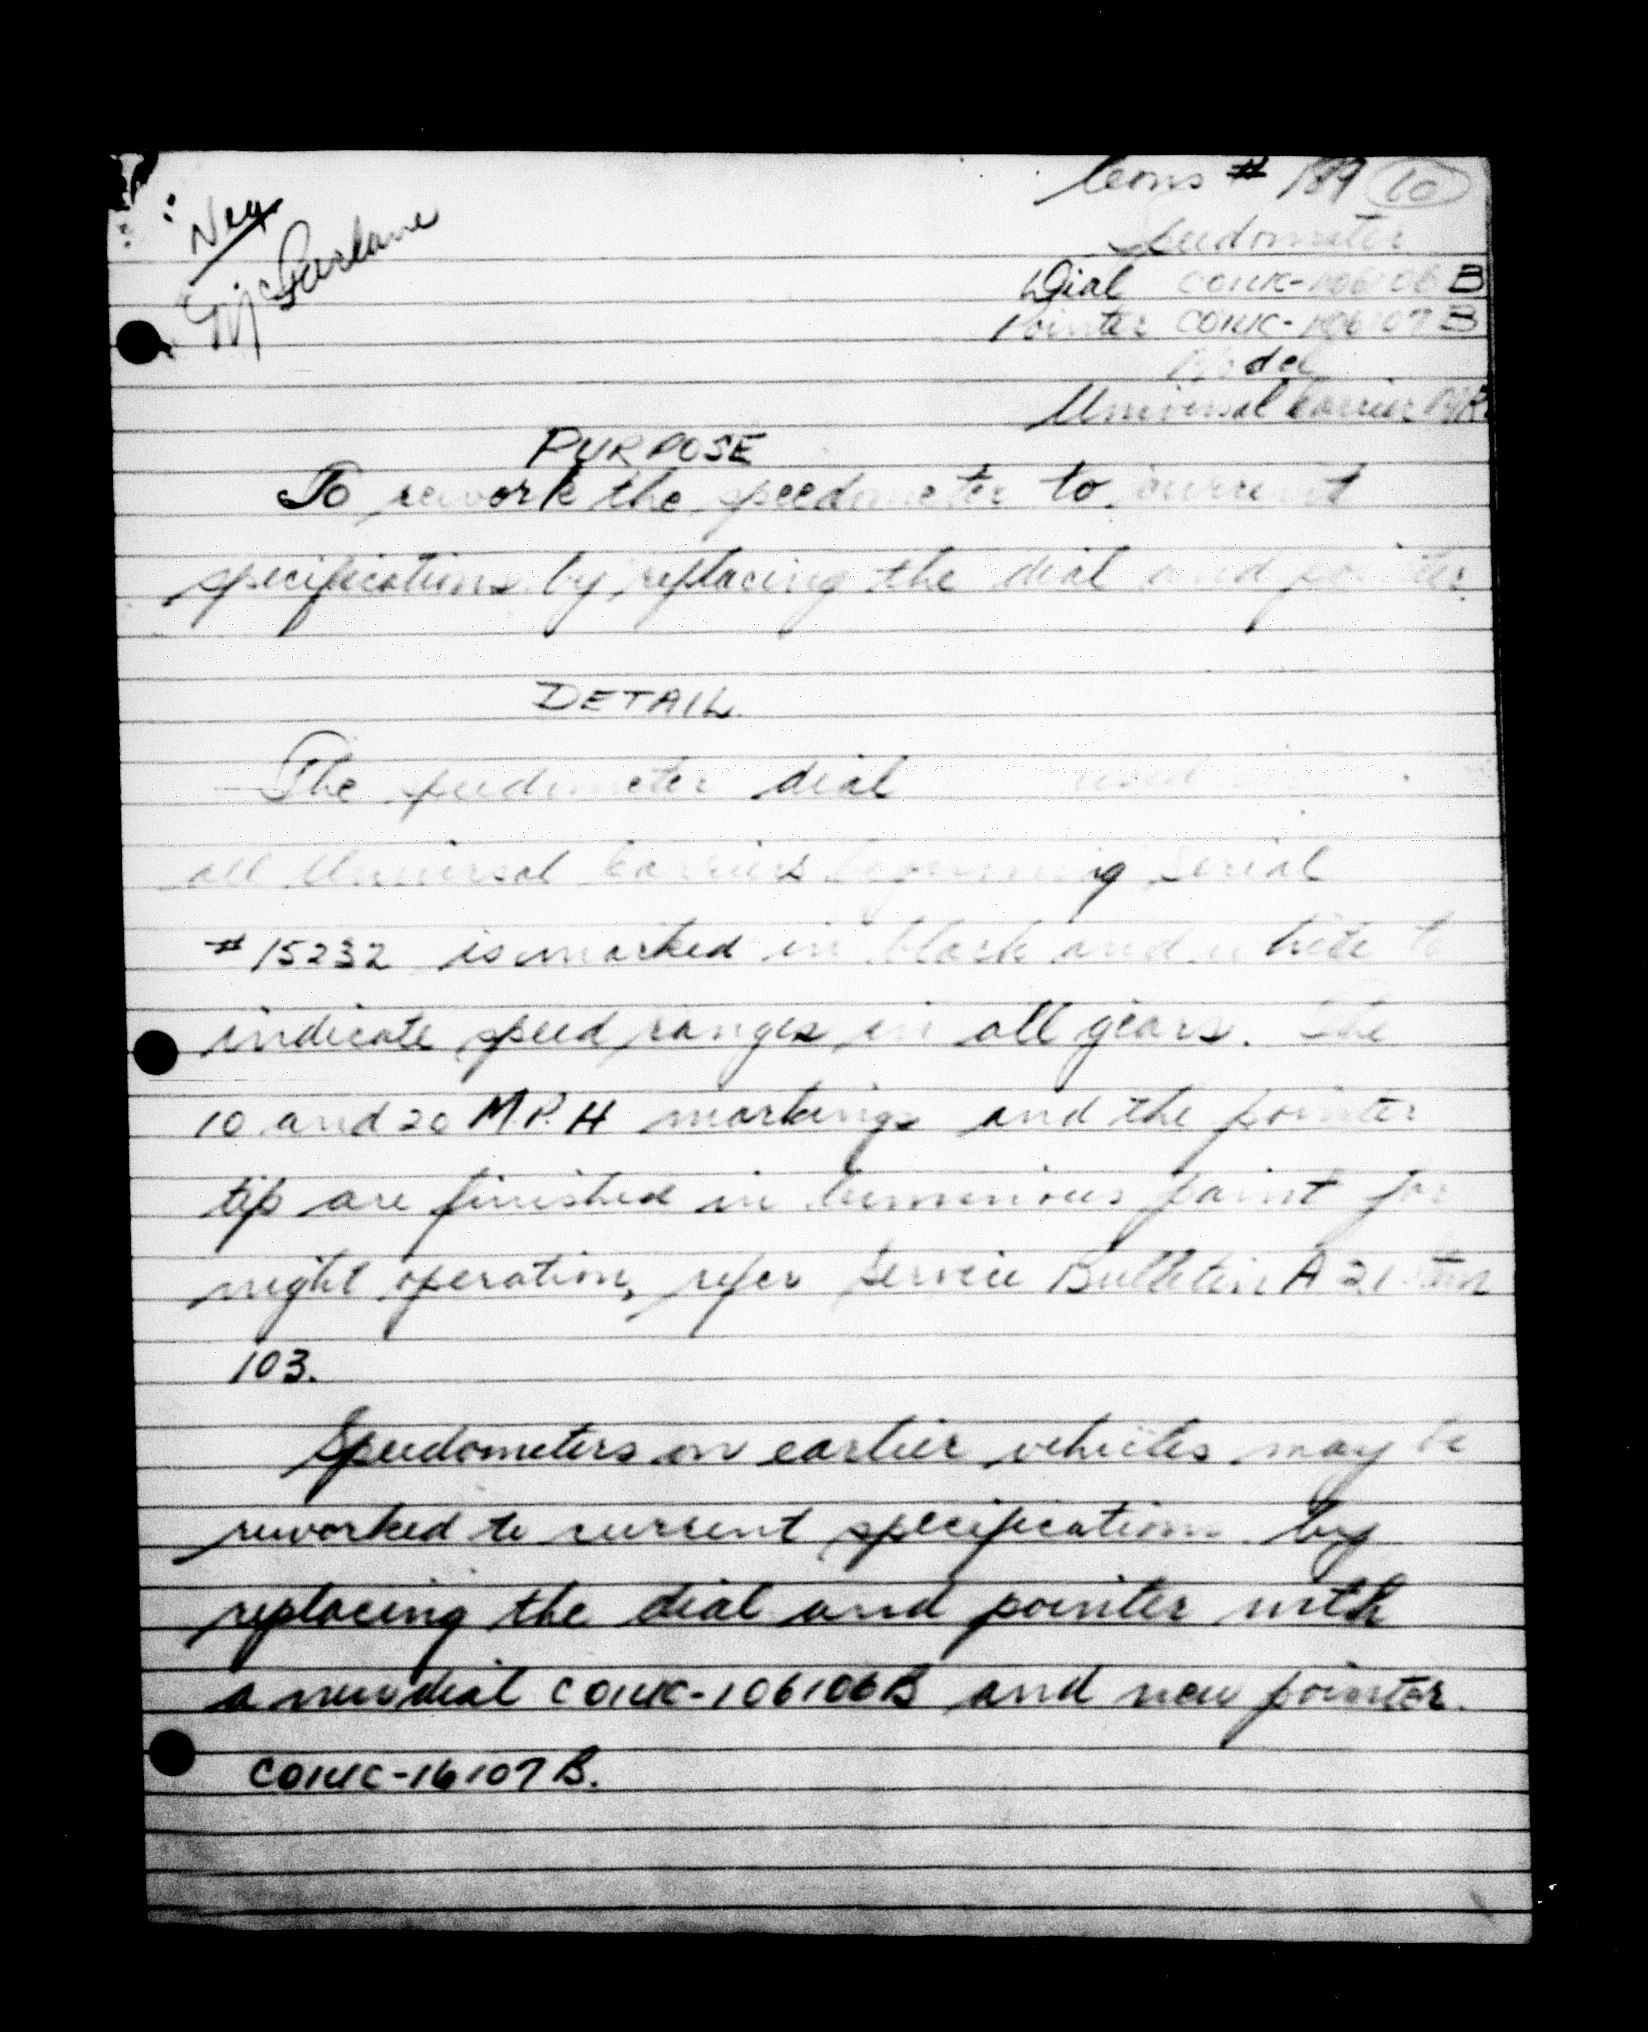 Cons # 189 10
McFarlane
Speedometer
Dial C01UC-106106B
Pointer C01UC-106107B
Model
Universal Carrier
PURPOSE
To rework the speedometer to current
specifications by replacing the dial and pointer.
DETAIL
The speedometer dial used
all Universal Carriers beginning Serial
#15232 is marked in black and white to
indicate speed ranges in all gears. The
10 and 20 M.P.H markings and the pointer
tip are finished in luminous paint for
night operation, refer Service Bulletin A 21 item
103.
Speedometers on earlier vehicles may be
reworked to current specifications by
replacing the dial and pointer with
a new dial C01UC-106106B and new pointer.
C01UC-16107B.